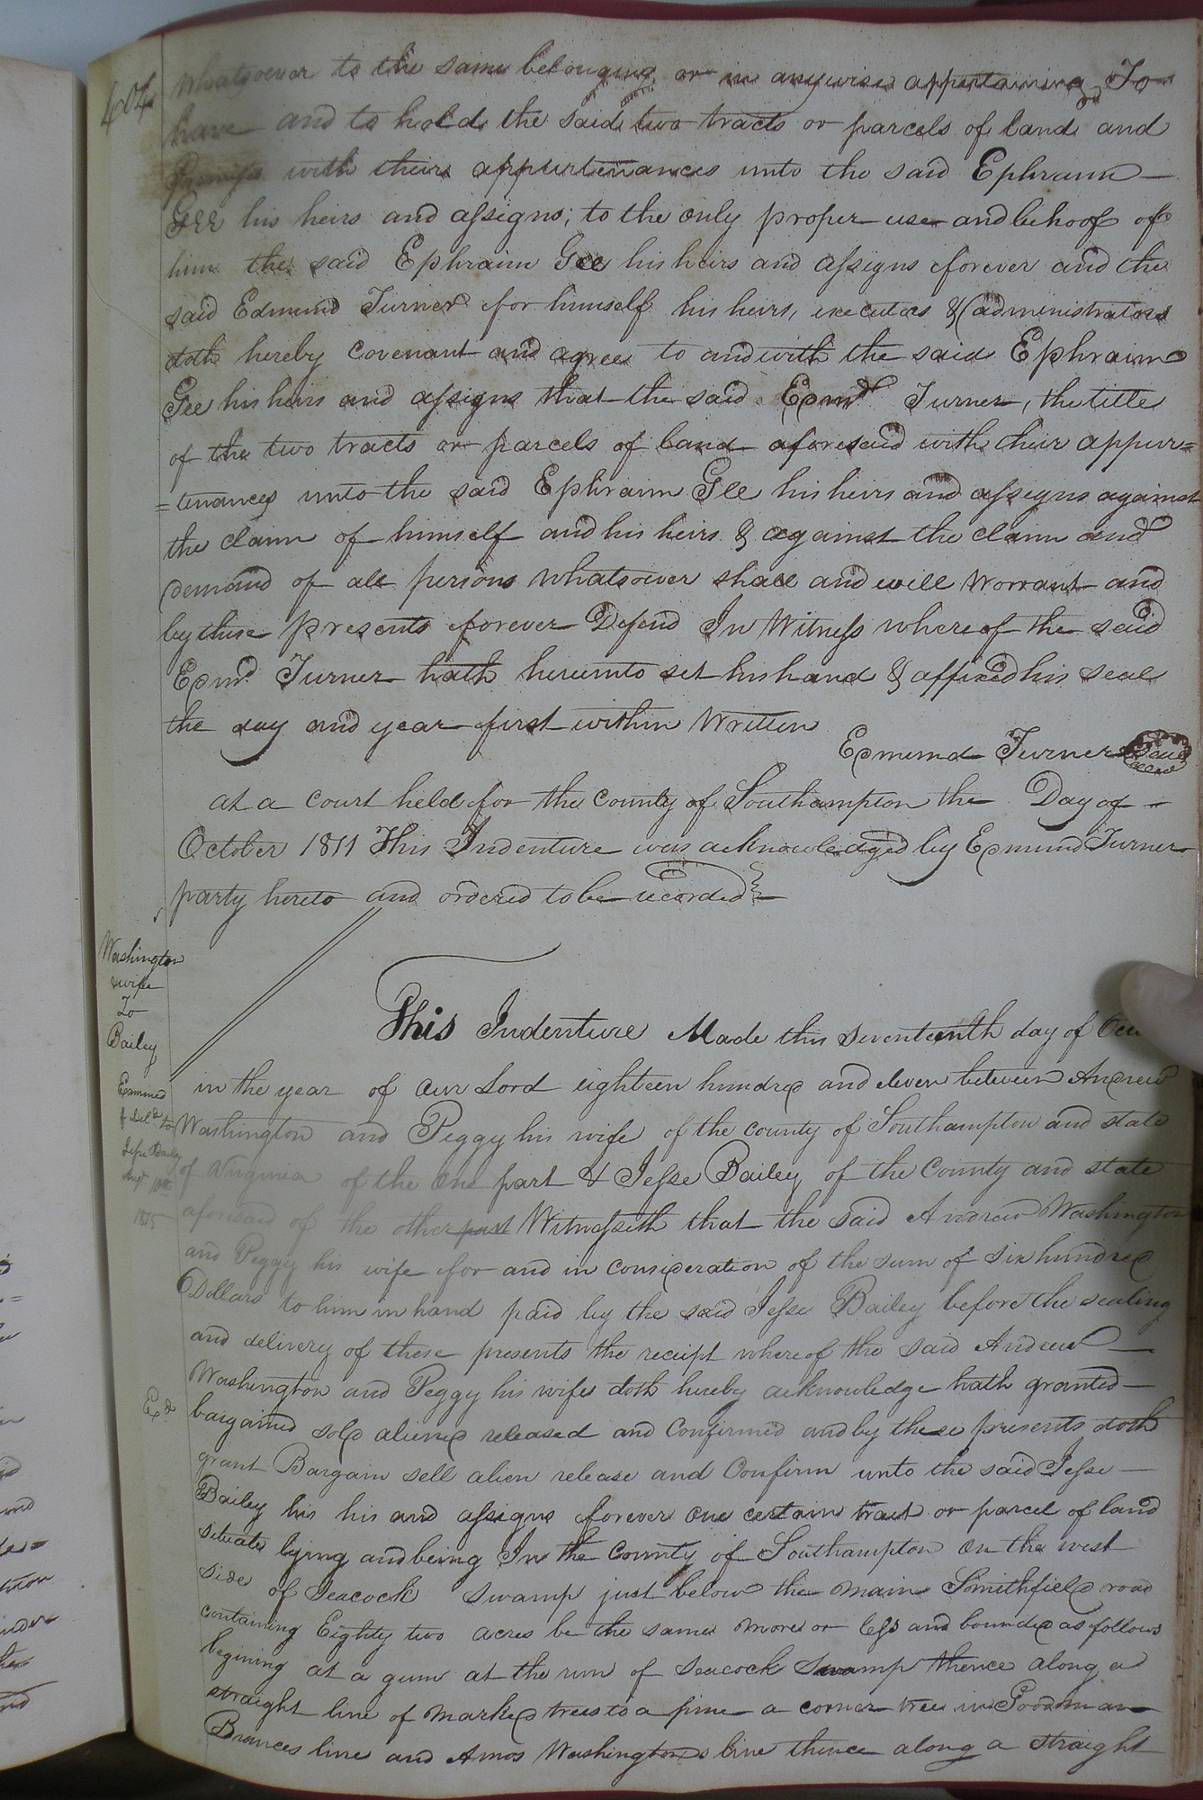 404
whatsoever to the same belonging or in anywise appertaining To
have and to hold the said two tracts or parcels of land and
Premises with their appurtenances unto the said Ephraim
Gee his heirs and assigns, to the only proper use and behoof of
him the said Ephraim Gee his heirs and assigns forever and the
said Edmund Turner for himself his heirs, executors & administrators
doth hereby covenant and agree to and with the said Ephraim
Gee his heirs and assigns that the said Edmd Turner, the title
of the two tracts or parcels of land aforesaid with their appur=
=tenances unto the said Ephraim Gee his heirs and assigns against
the claim of himself and his heirs & against the claim and
demand of all persons whatsoever shall and will Warrant and
by these presents forever Defend In Witness whereof the said
Edmd. Turner hath hereunto set his hand & affixed his seal
the day and year first within Written
Edmund Turner Seal
at a court held for the county of Southampton the Day of
October 1811 This Indenture was acknowledged by Edmund Turner
party hereto and ordered to be recorded
Washington
& wife
To
Bailey
Examined
& Deld to
Jesse Bailey
1815
This Indenture Made this seventeenth day of
in the year of our Lord eighteen hundred and eleven between Andrew
Washington and Peggy his wife of the county of Southampton and state
of Virginia of the one part & Jesse Bailey of the County and state
aforesaid of the other part Witnesseth that the said Andrew Washington
and Peggy his wife for and in consideration of the sum of six hundred
Dollars to him in hand paid by the said Jesse Bailey before the sealing
and delivery of these presents the receipt whereof the said Andrew
Washington and Peggy his wife doth hereby acknowledge hath granted
Exd
bargained sold aliened released and Confirmed and by these presents doth
grant Bargain sell alien release and Confirm unto the said Jesse
Bailey his his and assigns forever one certain tract or parcel of land
situate lying and being In the County of Southampton on the west
side of Seacock swamp just below the main Smithfield road
containing Eighty two acres be the same more or less and bounded as follows
begining at a gum at the run of Seacock Swamp thence along a
straight line of marked trees to a pine a corner tree in Goodman
line and Amos Washingtons line thence along a straight